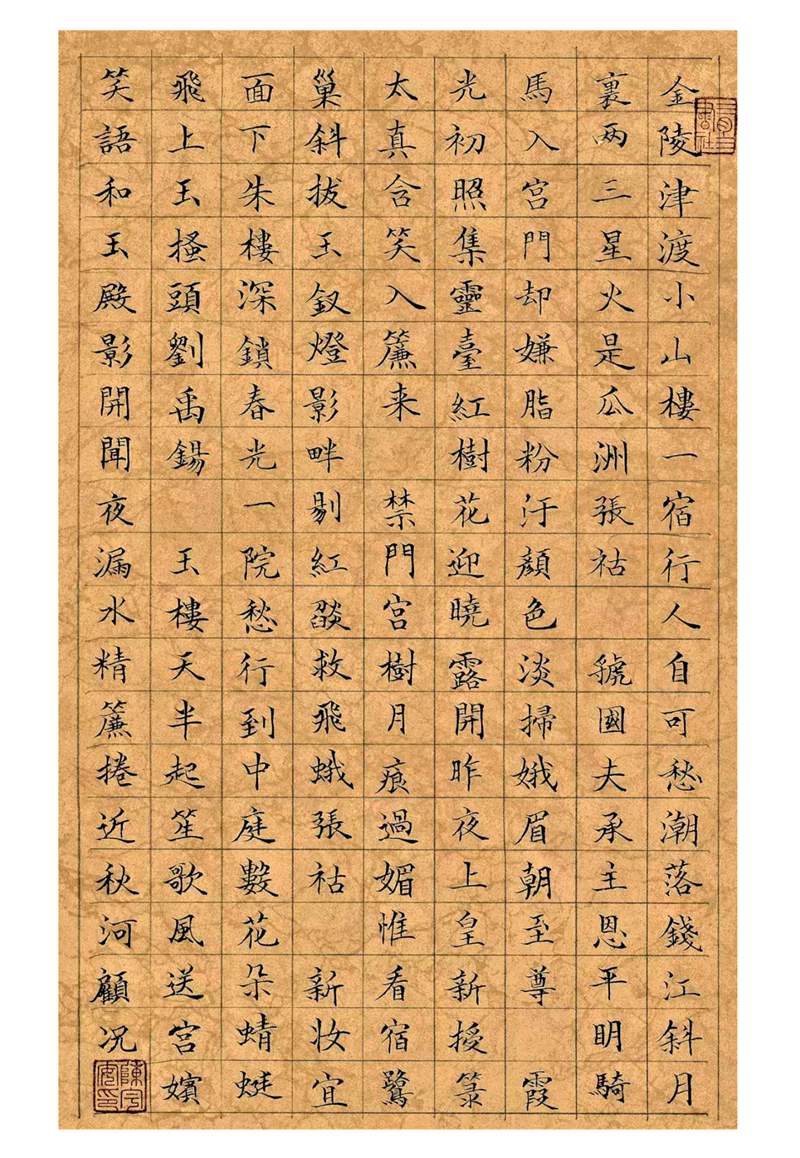 金陵津渡小山樓一宿行人自可愁潮落錢江斜月
裏兩三星火是瓜洲張祜 虢國夫承主恩平明騎
馬入宮門却嫌脂粉汙顏色淡掃娥眉朝至尊 霞
光初照集靈臺紅樹花迎曉露開昨夜上皇新授籙
太真含笑入簾来 禁門宮樹月痕過媚惟看宿鷺
巢斜拔玉釵燈影畔剔紅燄救飛蛾張祜 新妆宜
面下朱樓深鎖春光一院愁行到中庭數花朵蜻蜓
飛上玉搔頭劉禹錫 玉樓天半起笙歌風送宮嬪
笑語和玉殿影開聞夜漏水精簾捲近秋河顧况